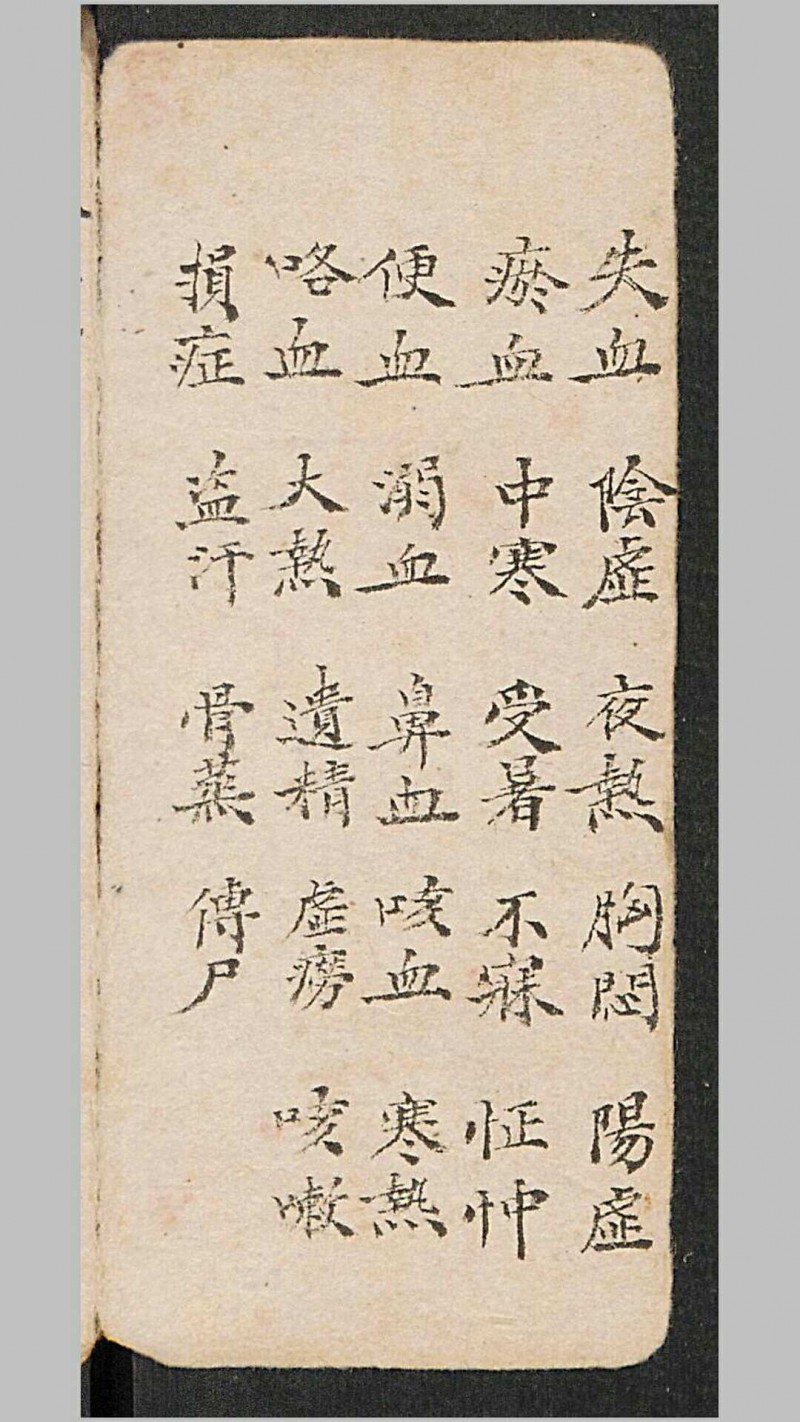 失血 陰虛 夜熱 胸悶 陽虛
瘀血 中寒 受暑 不寐 怔忡
便血 溺血 鼻血 咳血 寒熱
咯血 大熱 遺精 虛癆 咳嗽
損症 盗汗 骨蒸 傳尸